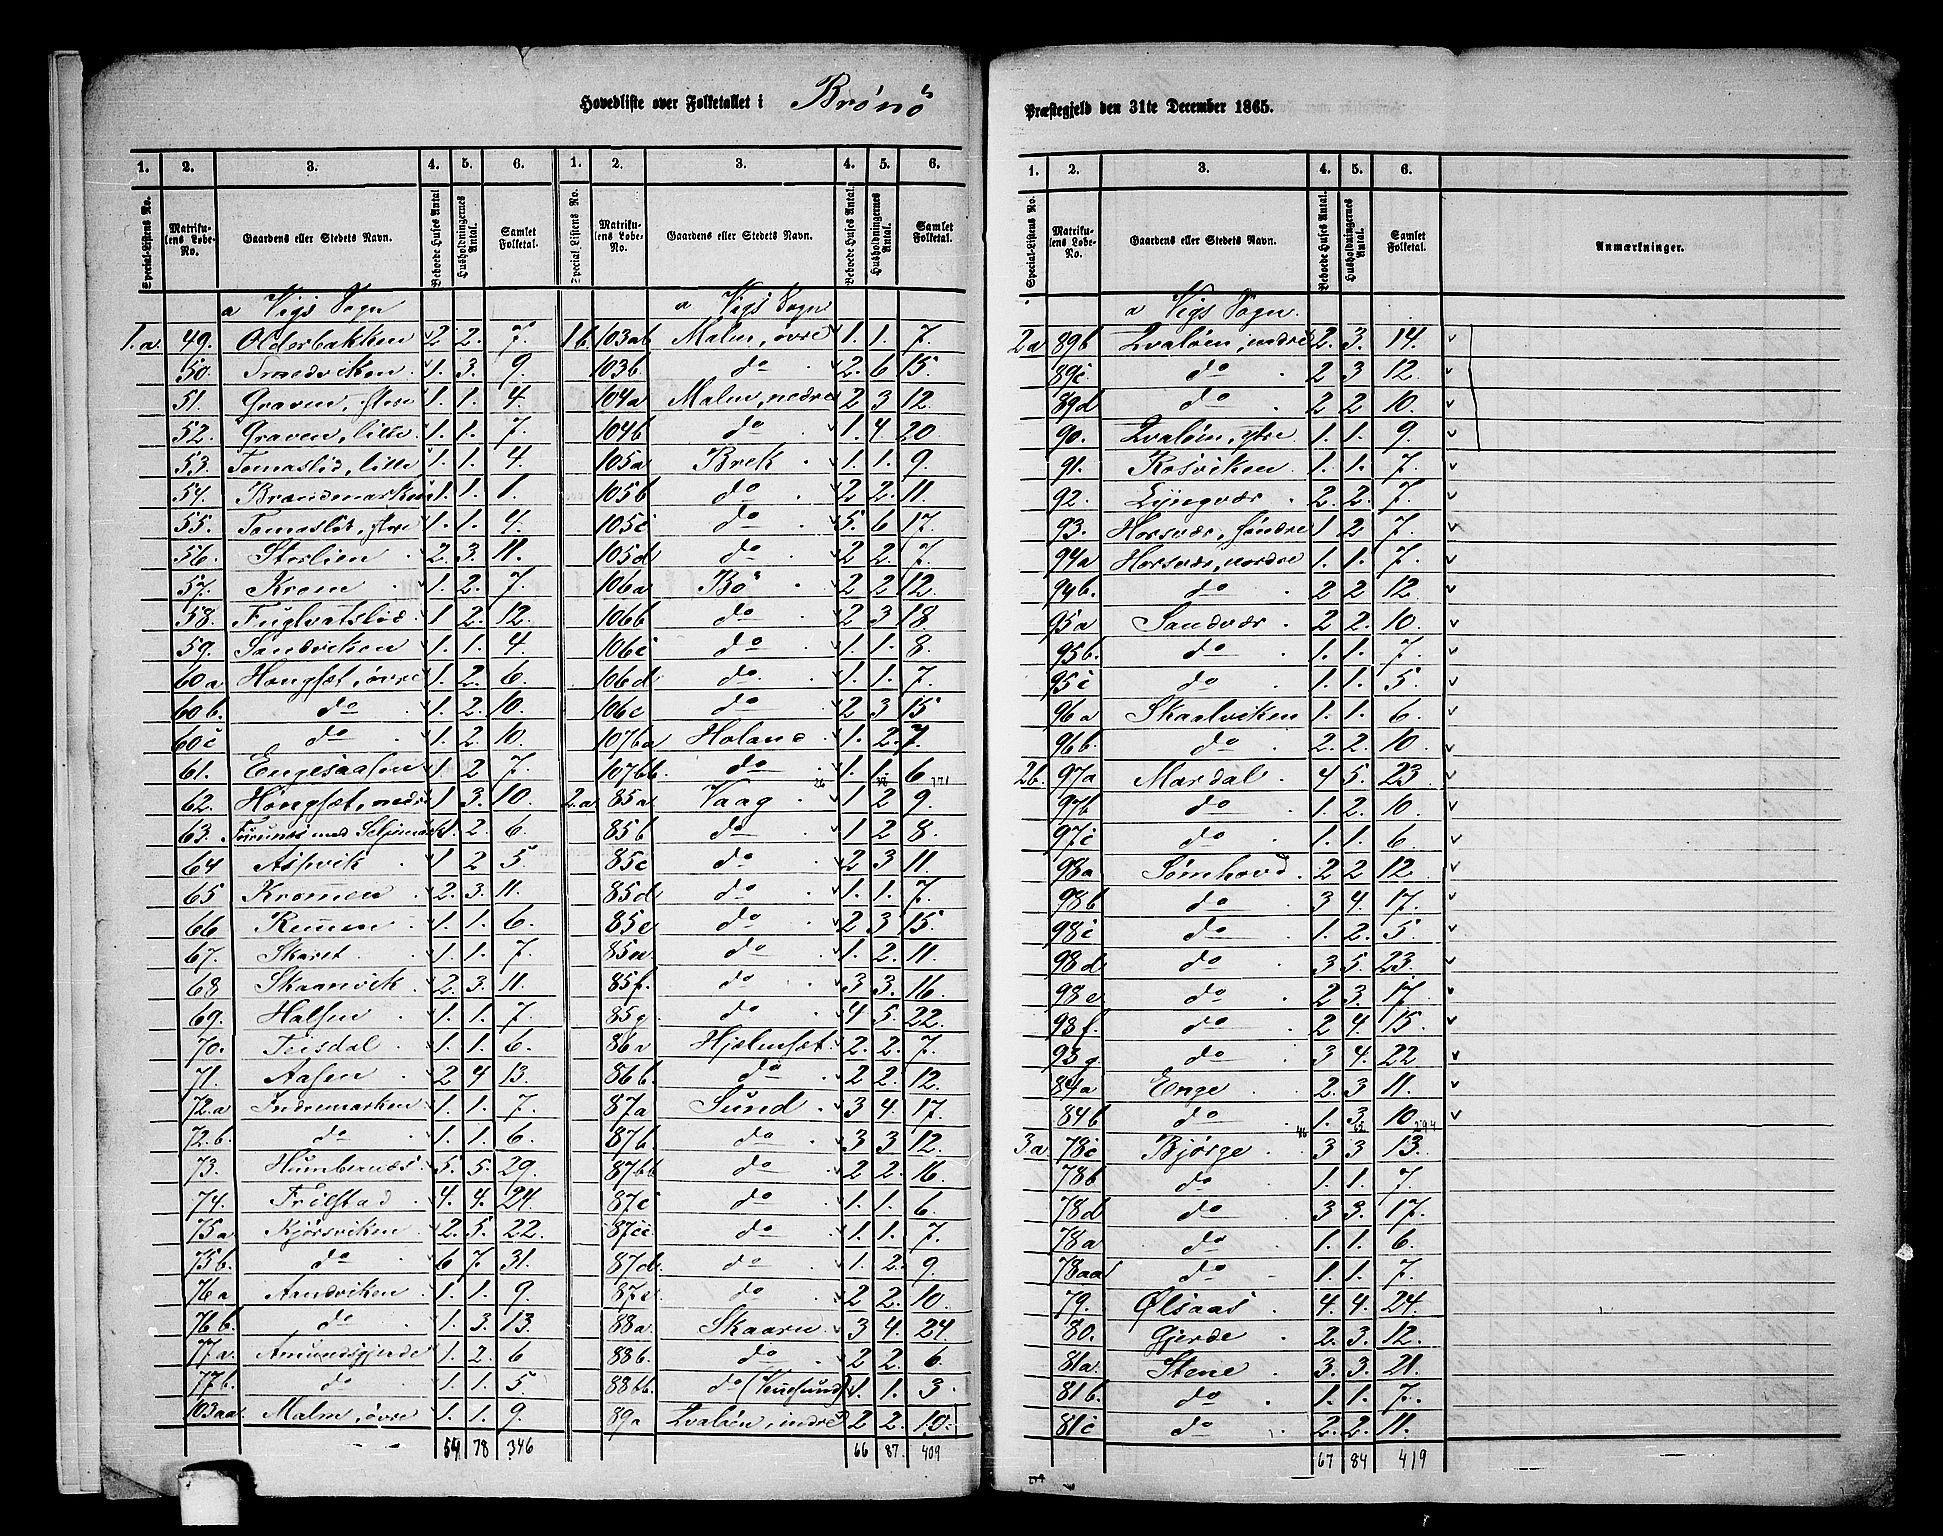 Hovedliste over Folketallet i Brönö
Præstegjeld den 31te December 1865.
1. 2. 3. 4. 5. 6. 1. 2. 3. 4. 5. 6.
Special-Listens No. Matrikulens Løbe-No. Gaardens eller Stedets Navn. Beboede Huses Antal Husholdningernes Antal. Samlet Folketal. Special-Listens No. Matrikulens Løbe-No. Gaardens eller Stedets Navn. Beboede Huses Antal. Husholdningernes Antal. Samlet Folketal.
a Vigs Sogn a Vigs Sogn
1.a. 49. Olderbakken 2 2. 7. 1b. 103ab Malm, övre 1. 1. 7.
50. Smedviken 1. 3. 9. 103b. do 2. 6 15.
51. Graven, store 1. 1. 4. 104a Malm, nedre 2 3 12.
52. Graven, lille 1. 1. 7. 104b do 1. 4 20
53. Tomaslid, lille 1. 1. 4. 105a Brek 1. 1. 9.
54. Brændmarken 1. 1. 1. 105b do 2 2. 11.
55. Tomaslid, store 1. 1. 4. 105c do 5. 6 17.
56. Storlien 2. 3. 11. 105d do 2 2. 7.
57. Kroen 1. 2. 7. 106a Bö 2 2 12.
58. Fuglvatslid 1 2. 12. 106b do 2 3 18.
59. Sandviken 1. 1. 4. 106c do 1. 1 8.
60a Hongset, övre 1. 2. 6. 106d do 1. 1. 7.
60b. do 1. 2. 10. 106e do 2 3 15
60c do 1. 2 10. 107ba Holand 1. 2. 7.
61. Engesaasen 1. 2 7. 107bb do 1. 1. 6
26 37 171
62. Hongset, nedre 1 3. 10. 2.a. 85a Vaag 1 2 9.
63. Furunes med Seljemark 1. 2. 6. 85b do 1 2 8.
64 Aspvik 1 2 5. 85c do 2 3 11.
65 Kromen 2. 3. 11. 85d do 1. 1. 7.
66 Remmen 1. 1. 6. 85e do 2 3 15.
67. Skaret 1. 1. 7. do 1. 2. 11.
68 Skaanvik 2. 3. 11. 85f. do 3 3. 16.
69. Halsen 1. 1. 7. 85g do 4 5. 22.
70. Teisdal 1. 1. 6. 86a Hjelmset 2. 2. 7.
71. Aasen 2 4 13. 86b. do 2 2. 12.
72.a Indremarken 1. 1. 7. 87a Sund 3 4. 17.
72.b. do 1. 1. 6. 87b do 3 3 12.
73. Humbernæs 5. 5. 29. 87bb do 2 2. 16.
74. Fridstad 4. 4. 24. 87c do 1. 1. 6.
75a Kjörsviken 2. 5. 22. 87cc do 1. 1. 7.
75b. do 6 7. 31. 87d. do 1. 2. 9.
76a Aandviken 1. 1. 9. 87e. do 2 2. 10.
76b. do 1. 3. 13. 88a. Skaaren 3 4. 24.
77a. Amundsgjerde 1. 2. 6 88b. do 2 2. 6.
77b. do 1. 1. 5. 88bb. do (Vennesund) 1. 1. 3.
103aa Malm, övre 1. 1. 9. 89a Qvalöen, indre 2 2. 10.
54 78 346 66 87. 409
1. 2. 3. 4. 5. 6.
Special-Listens No. Matrikulens Løbe-No. Gaardens eller Stedets Navn. Beboede Huses Antal. Husholdningernes Antal. Samlet Folketal. Anmærkninger.
a Vigs Sogn.
2a 89b Qvalöen, indre 2. 3. 14. v
89c. do 2 3 12. v
89d do 2 2 10. v
90. Qvalöen, ytre 1. 1. 9. v
91. Rosviken 1. 1. 7. v
92. Lyngvær 2. 2. 7. v
93. Horsvær, söndre 1 2 7. v
94a Horsvær, nordre 1. 1. 7. v
94b. do 2 2 12. v
95a Sandvær 2 2. 10. v
95b. do 1. 1. 7. v
95c do 1. 1. 5. v
96a Skaalviken 1. 1. 6. v
96b. do 2. 2. 10. v
2b. 97a Mardal 4 5. 23 v
97b do 1. 2. 10. v
97c do 1. 1. 6. v
98a Sömhovd 2 2 12. v
98b do 3 4. 17. v
98c do 1. 2. 5 v
98d do 3 5. 23. v
98e do 2 3. 17. v
98f. do 2 4. 15. v
98g do 3 4. 22 v
84a Enge 2. 3 11. v
84b do 1. 3. 10 v
46 65 294
3.a 78c Bjørge 3 3 13.
78b do 1. 1. 7.
78d do 3 3. 17.
78a do 1. 1. 6.
78aa do 1. 1. 7.
79. Ølsaas 4. 4. 24.
80. Gjerde 2. 3. 12.
81a. Stene 3. 3. 21.
81b. do 1. 1. 7.
81c do 2. 2. 11.
67 84 419